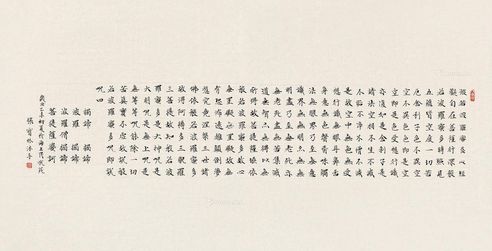 般若波羅蜜多心經
觀自在菩薩行深般
若波羅蜜多時照見
五蘊皆空度一切苦
厄舍利子色不異空
空不異色色即是空
空即是色受想行識
亦復如是舍利子是
諸法空相不生不滅
不垢不淨不增不減
是故空中無色無受
想行識無眼耳鼻舌
身意無色聲香味觸
法無眼界乃至無意
識界無無明亦無無
明盡乃至無老死亦
無老死盡無苦集滅
道無智亦無得以無
所得故菩提薩埵依
般若波羅蜜多故心
無罣礙無罣礙故無
有恐怖遠離顛倒夢
想究竟涅槃三世諸
佛依般若波羅蜜多
故得阿耨多羅三藐
三菩提故知般若波
羅蜜多是大神咒是
大明咒是無上咒是
無等等咒能除一切
苦真實不虛故說般
若波羅蜜多咒即說
咒曰
揭諦 揭諦
波羅 揭諦
波羅僧 揭諦
菩提薩婆訶